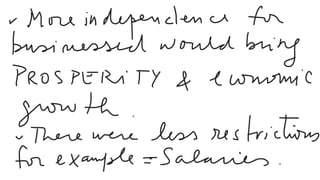 ✓ More independence for
businessed would bring
PROSPERITY & economic
growth.
✓ There were less restrictions
for example = Salaries.